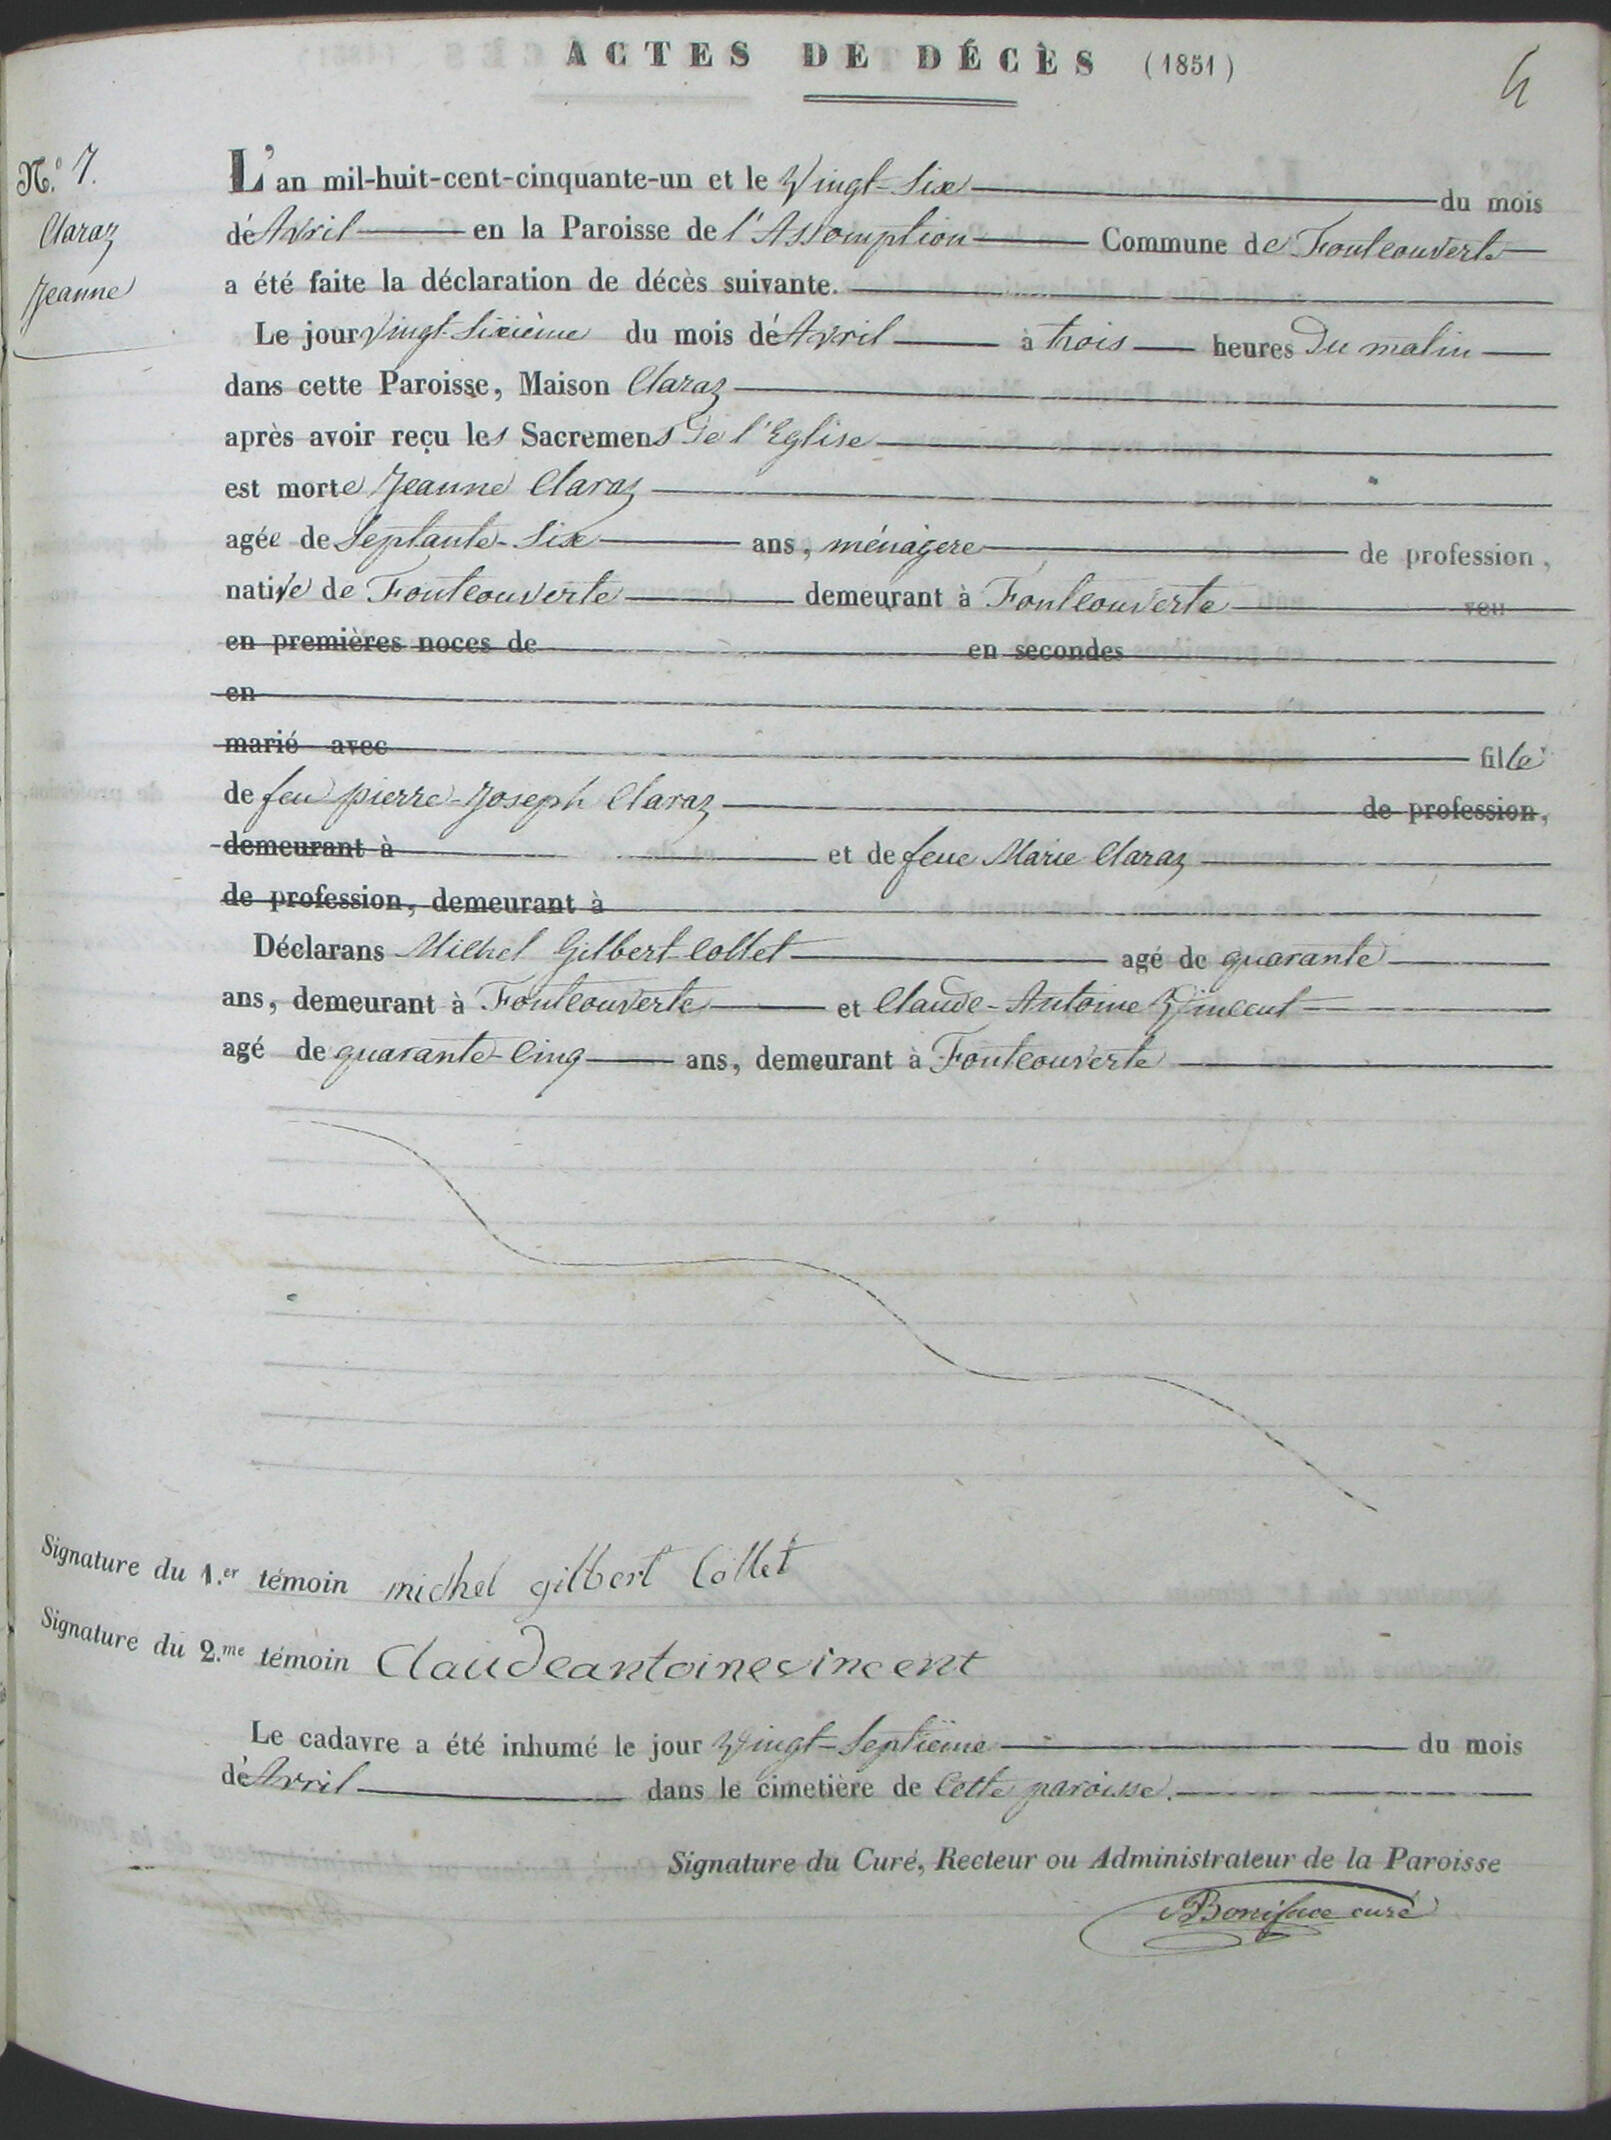 ACTES DE DÉCÈS (1851)
4
N.º 7.
Claraz
Jeanne
L'an mil-huit-cent-cinquante-un et le Vingt-Six du mois
d'Avril en la Paroisse de l'Assomption Commune de Fontcouverte
a été faite la déclaration de décès suivante.
Le jour Vingt-Sixième du mois d'Avril à trois heures Du matin
dans cette Paroisse, Maison Claraz
après avoir reçu les Sacremens De l'Eglise
est morte Jeanne Claraz
agée de Septante-Six ans, ménagère de profession,
native de Fontcouverte demeurant à Fontcouverte veu
en premières noces de en secondes
en
marié avec fille
de feu pierre-Joseph Claraz de profession,
demeurant à et de feue Marie Claraz
de profession, demeurant à
Déclarans Michel Gilbert-Collet agé de quarante
ans, demeurant à Fontcouverte et Claude-Antoine Vincent
agé de quarante-Cinq ans, demeurant à Fontcouverte
Signature du 1.er témoin michel gilbert Collet
Signature du 2.me témoin Claudeantoinevincent
Le cadavre a été inhumé le jour Vingt-Septième du mois
d'Avril dans le cimetière de Cette paroisse.
Signature du Curé, Recteur ou Administrateur de la Paroisse
Boniface curé